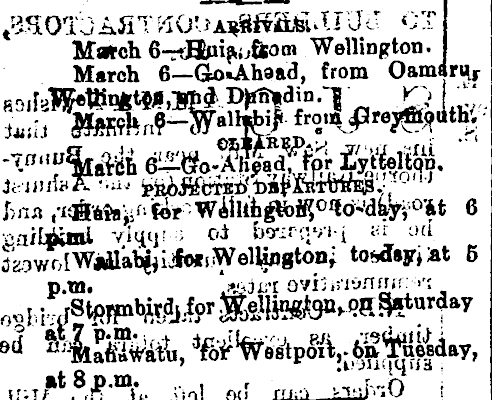 ARRIVALS.
March 6—Huia, from Wellington.
March 6—Go-Ahead, from Oamaru,
Wellington, and Dunedin.
March 6—Wallabi, from Greymouth.
CLEARED.
March 6—Go-Ahead, for Lyttelton.
PROJECTED DEPARTURES.
Huia, for Wellington, to-day, at 6
p.m.
Wallabi, for Wellington, to-day, at 5
p.m.
Stormbird, for Wellington, on Saturday
at 7 p.m.
Manawatu, for Westport, on Tuesday,
at 8 p.m.